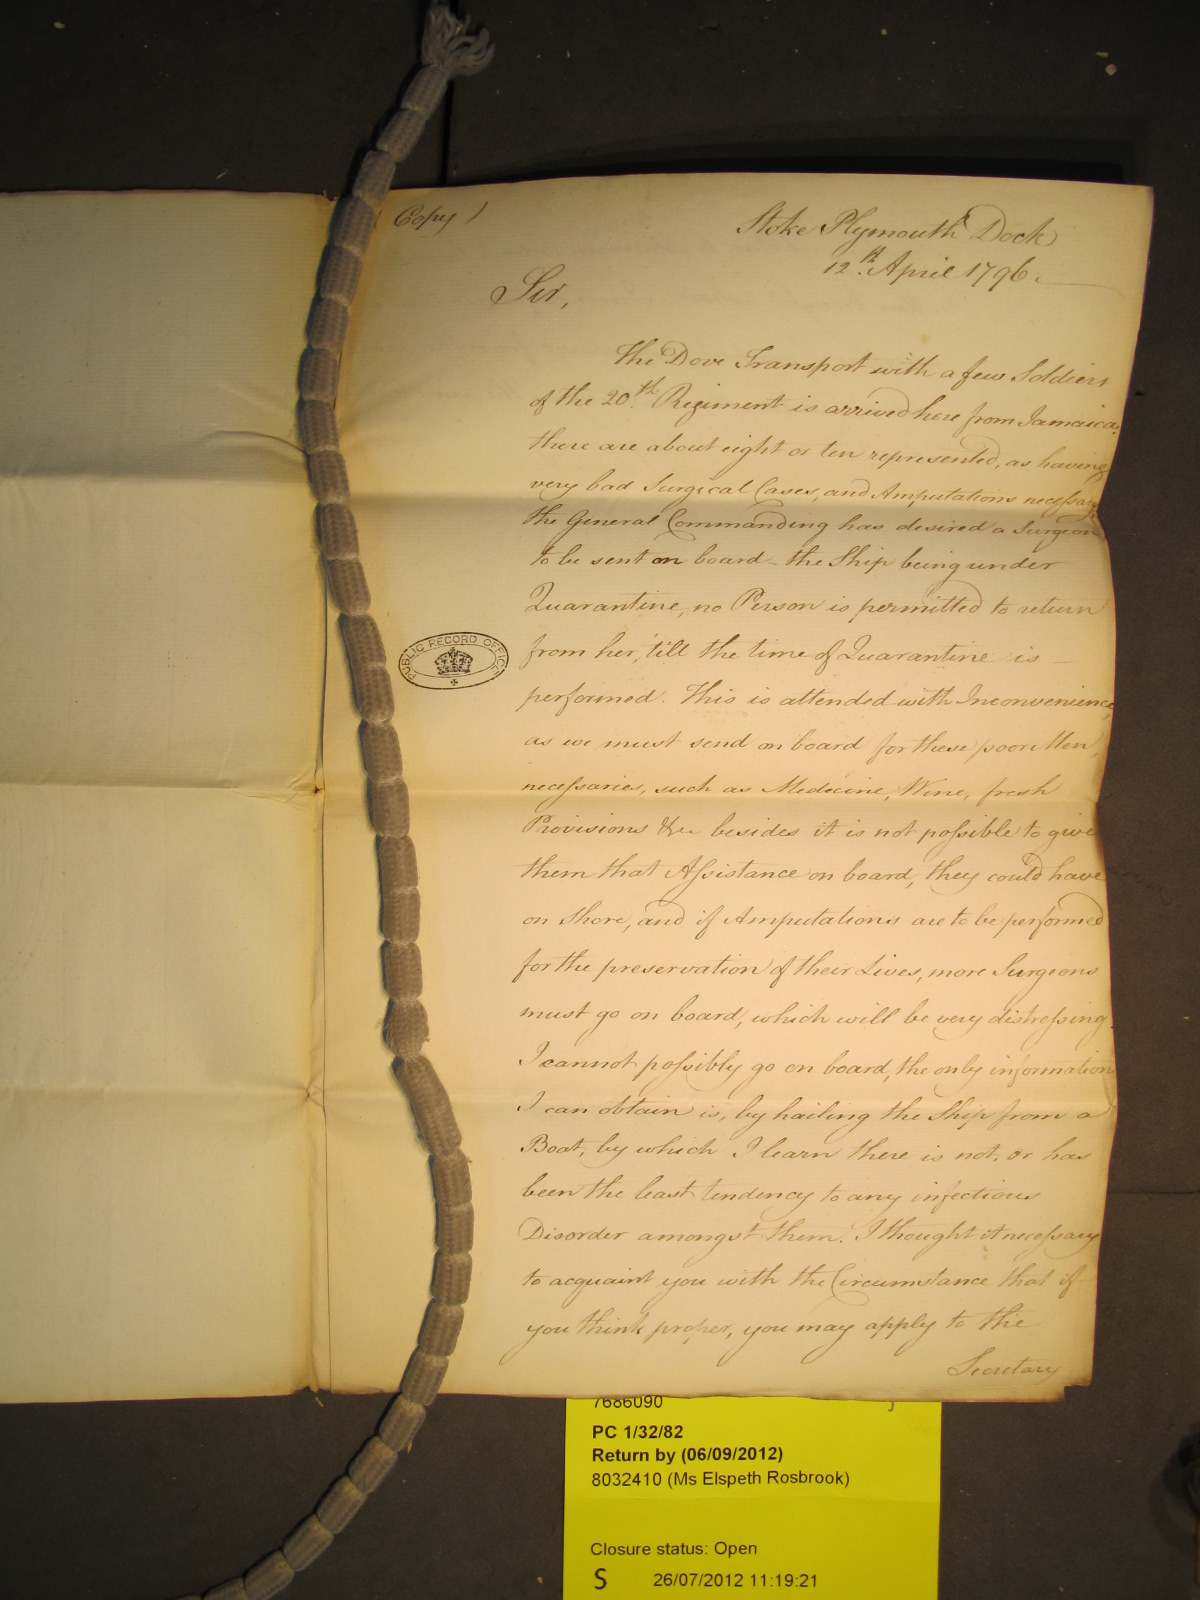 ( Copy )
Stoke Plymouth Dock
12th. April 1796.
Sir,
The Dove Transport with a few Soldiers
of the 20th. Regiment is arrived here from Jamaica.
there are about eight or ten represented, as having
very bad Surgical Cases, and Amputations necessary
the General Commanding has desired a Surgeon
to be sent on board - the Ship being under
Quarantine, no Person is permitted to return
from her, 'till the time of Quarantine is —
performed. This is attended with Inconvenience,
as we must send on board for these poor Men,
necessaries, such as Medicine, Wine, fresh
Provisions &ca besides it is not possible to give
them that Assistance on board, they could have
on Shore, and if Amputations are to be performed
for the preservation of their Lives, more Surgeons
must go on board, which will be very distressing.
I cannot possibly go on board, the only information
I can obtain is, by hailing the Ship from a
Boat, by which I learn there is not, or has
been the least tendency to any infectious
Disorder amongst them. I thought it necessary
to acquaint you with the Circumstance that if
you think proper, you may apply to the
Secretary
PUBLIC RECORD OFFICE
7686090
PC 1/32/82
Return by (06/09/2012)
8032410 (Ms Elspeth Rosbrook)
Closure status: Open
S 26/07/2012 11:19:21